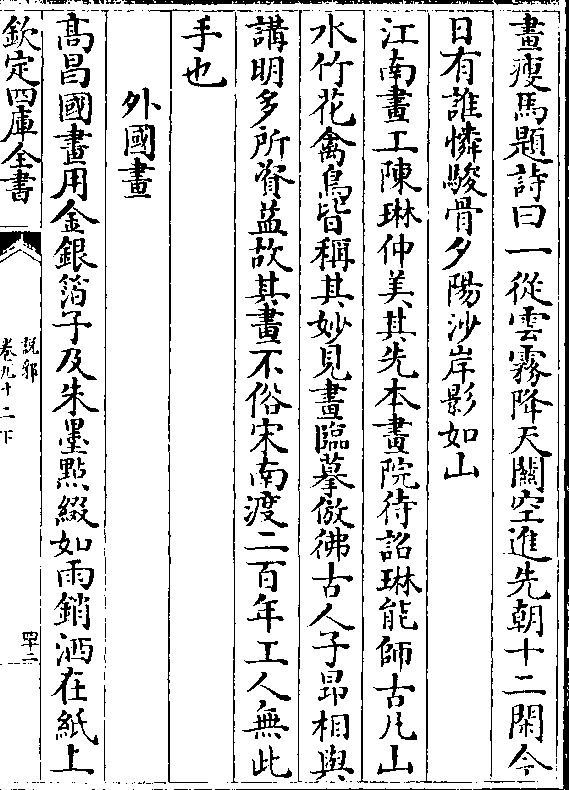 畫瘦馬題詩曰一從雲霧降天關空進先朝十二閑今
日有誰憐駿骨夕陽沙岸影如山
江南畫工陳琳仲美其先本畫院待詔琳能師古凡山
水竹花禽鳥皆稱其妙見畫臨摹倣彿古人子昻相與
講明多所資益故其畫不俗宋南渡二百年工人無此
手也
外國畫
髙昌國畫用金銀箔子及朱墨點綴如雨銷洒在紙上
欽定四庫全書
說郛
卷九十二下
四十二